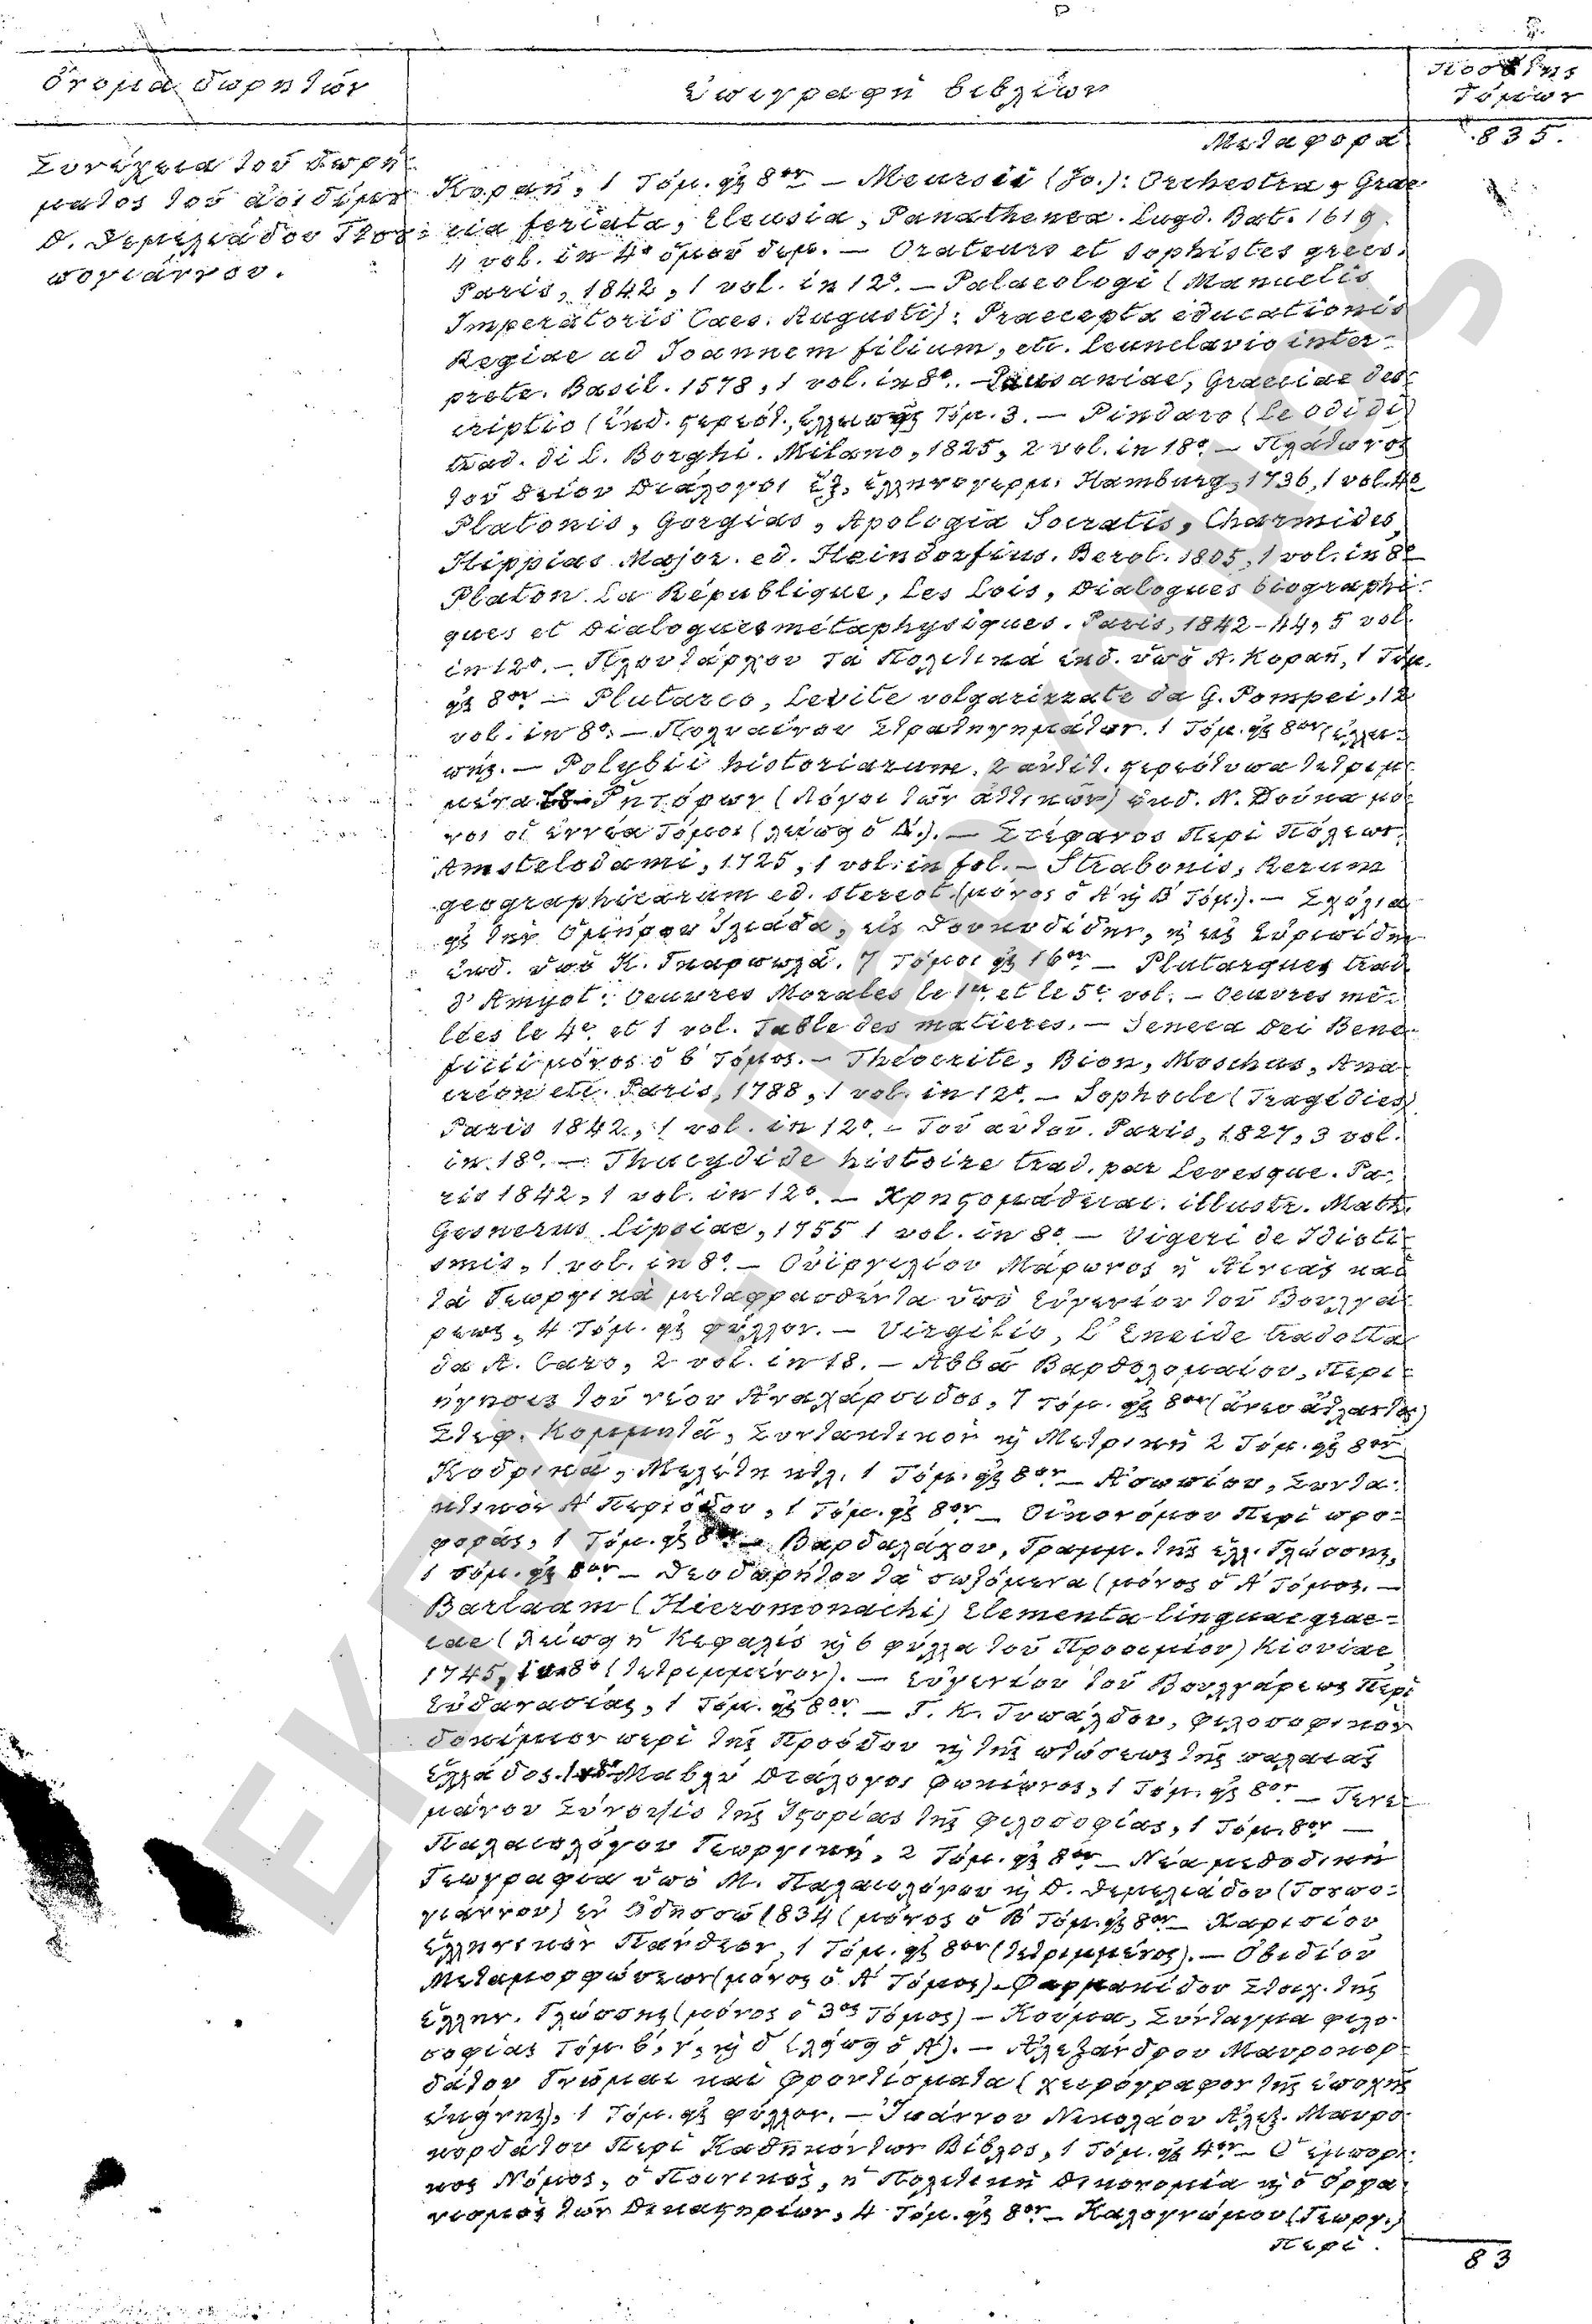 ὄνομα δωρητῶν
ἐπιγραφὴ βιβλίων
Ποσότης
τόμων
Μεταφορά
835.
Συνέχεια τοῦ δωρή-
ματος τοῦ ἀοιδίμου
Θ. Θεμελιάδου Τσου-
πογιάννου.
Κοραῆ, 1 Τόμ. εἰς 8ον — Meursii (Jo.): Orchestra, Grae-
cia feriata, Eleusia, Panathenea. Lugd. Bat. 1619.
4 vol. in 4º ὁμοῦ δεμ. — Orateurs et sophistes grecs.
Paris, 1842, 1 vol. in 12º. — Palaeologi (Manuelis
Imperatoris Caes. Augusti): Praecepta educationis
Regiae ad Joannem filium, etc. Leunclavio inter-
prete. Basil. 1578, 1 vol. in 8º. — Pausaniae, Graeciae des-
criptio (ἐκδ. στερεότ., ἐλλειπὴς Τόμ. 3. — Pindaro (Le odi di)
trad. di L. Borghi. Milano, 1825, 2 vol. in 18º. — Πλάτωνος
τοῦ θείου Διάλογοι ἓξ, ἑλληνογερμ. Hamburg, 1736, 1 vol. 4º
Platonis, Gorgias, Apologia Socratis, Charmides,
Hippias Major. ed. Heindorfius. Berol. 1805, 1 vol. in 8º
Platon. La République, Les Lois, Dialogues biographi-
ques et Dialogues métaphysiques. Paris, 1842-44, 5 vol.
in 12º. — Πλουτάρχου τὰ Πολιτικά ἐκδ. ὑπὸ Α. Κοραῆ, 1 Τόμ.
εἰς 8ον — Plutarco, Le vite volgarizzate da G. Pompei, 12
vol. in 8º. — Πολυαίνου Στρατηγημάτων. 1 Τόμ. εἰς 8ον (ἐλλει-
πής. — Polybii historiarum. 2 ἀντίτ. στερεότυπα τετριμ-
μένα — Ῥητόρων (Λόγοι τῶν ἀττικῶν) ἐκδ. Ν. Δούκα μό-
νοι οἱ ἐννέα Τόμοι (λείπει ὁ Δ΄.). — Στέφανος Περὶ Πόλεων.
Amstelodami, 1725, 1 vol. in fol. — Strabonis, Rerum
geographicarum ed. stereot. (μόνος ὁ Α΄ καὶ Β΄ Τόμ.). — Σχόλια
εἰς τὴν Ὁμήρου Ἰλιάδα, εἰς Θουκυδίδην, καὶ εἰς Εὐριπίδην
ἐκδ. ὑπὸ Κ. Γκαρπολᾶ. 7 Τόμοι εἰς 16ον — Plutarques trad.
d'Amyot. Oeuvres Morales le 1er. et le 5e. vol. — Oeuvres mê-
lées le 4e. et 1 vol. Table des matieres. — Seneca Dei Bene-
ficii μόνος ὁ β΄ Τόμος. — Théocrite, Bion, Moschus, Ana-
créon etc. Paris, 1788, 1 vol. in 12º. — Sophocle (Tragédies)
Paris 1842, 1 vol. in 12º. — Τοῦ αὐτοῦ. Paris, 1827, 3 vol.
in 18º. — Thucydide histoire trad. par Levesque. Pa-
ris 1842, 1 vol. in 12º. — Χρηστομάθειαι. illustr. Math.
Gesnerus. Lipsiae, 1755 1 vol. in 8º. — Vigeri de Idioti-
smis, 1 vol. in 8º. — Οὐϊργιλίου Μάρωνος ἡ Αἰνειὰς καὶ
τὰ Γεωργικὰ μεταφρασθέντα ὑπὸ Εὐγενίου τοῦ Βουλγά-
ρεως, 4 Τόμ. εἰς φύλλον. — Virgilio, L'Eneide tradotta
da A. Caro, 2 vol. in 18. — Ἀββᾶ Βαρθολομαίου, Περι-
ήγησις τοῦ νέου Ἀναχάρσιδος, 7 Τόμ. εἰς 8ον (ἄνευ ἄτλαντος)
Στεφ. Κομμητᾶ, Συντακτικὸν καὶ Μετρική 2 Τόμ. εἰς 8ον
Κοδρικᾶ, Μελέτη κτλ. 1 Τόμ. εἰς 8ον — Ἀσωπίου, Συντα-
κτικὸν Α΄ Περιόδου, 1 Τόμ. εἰς 8ον — Οἰκονόμου Περὶ προ-
φορᾶς, 1 Τόμ. εἰς 8ον — Βαρδαλάχου, Γραμμ. τῆς ἑλλ. Γλώσσης,
1 τόμ. εἰς 8ον — Θεοδωρήτου τὰ σωζόμενα (μόνος ὁ Α΄ Τόμος. —
Barlaam (Hieromonachi) Elementa linguae grae-
cae (λείπει ἡ Κεφαλὶς καὶ 6 φύλλα τοῦ Προοιμίου)
1745, in 8º (τετριμμένον). — Εὐγενίου τοῦ Βουλγάρεως Περὶ
Εὐθανασίας, 1 Τόμ. εἰς 8ον. — Γ. Κ. Τυπάλδου, φιλοσοφικὸν
δοκίμιον περὶ τῆς Προόδου καὶ τῆς πτώσεως τῆς παλαιᾶς
Ἑλλάδος. Μαβλὺ Διάλογος Φωκίωνος, 1 Τόμ. εἰς 8ον — Τενε-
μάνου Σύνοψις τῆς Ἱστορίας τῆς φιλοσοφίας, 1 Τόμ. 8ον —
Παλαιολόγου Γεωργική, 2 Τόμ. εἰς 8ον — Νέα μεθοδικὴ
Γεωγραφία ὑπὸ Μ. Παλαιολόγου καὶ Θ. Θεμελιάδου (Τσουπο-
γιάννου) ἐν Ὀδησσῷ 1834 (μόνος ὁ Β΄ Τόμ. εἰς 8ον — Χαρισίου
Ἑλληνικὸν Πάνθεον, 1 Τόμ. εἰς 8ον (τετριμμένος). — Ὀβιδίου
Μεταμορφώσεων (μόνος ὁ Α΄ Τόμος) — Φαρμακίδου Στοιχ. τῆς
ἑλλην. Γλώσσης (μόνος ὁ 3ος Τόμος) — Κούμα, Σύνταγμα φιλο-
σοφίας Τόμ. β΄, γ΄, καὶ δ΄ (λείπει ὁ Α΄). — Ἀλεξάνδρου Μαυροκορ-
δάτου Γνῶμαι καὶ Φροντίσματα (χειρόγραφον τῆς ἐποχῆς
ἐκείνης), 1 Τόμ. εἰς φύλλον. — Ἰωάννου Νικολάου Ἀλεξ. Μαυρο-
κορδάτου Περὶ Καθηκόντων Βίβλος, 1 Τόμ. εἰς 4ον — Ὁ ἐμπορι-
κος Νόμος, ὁ Ποινικὸς, ἡ Πολιτικὴ Οἰκονομία καὶ ὁ Ὀργα-
νισμὸς τῶν Δικαστηρίων, 4 Τόμ. εἰς 8ον — Καλογνώμου (Γεωργ.)
Περὶ
83